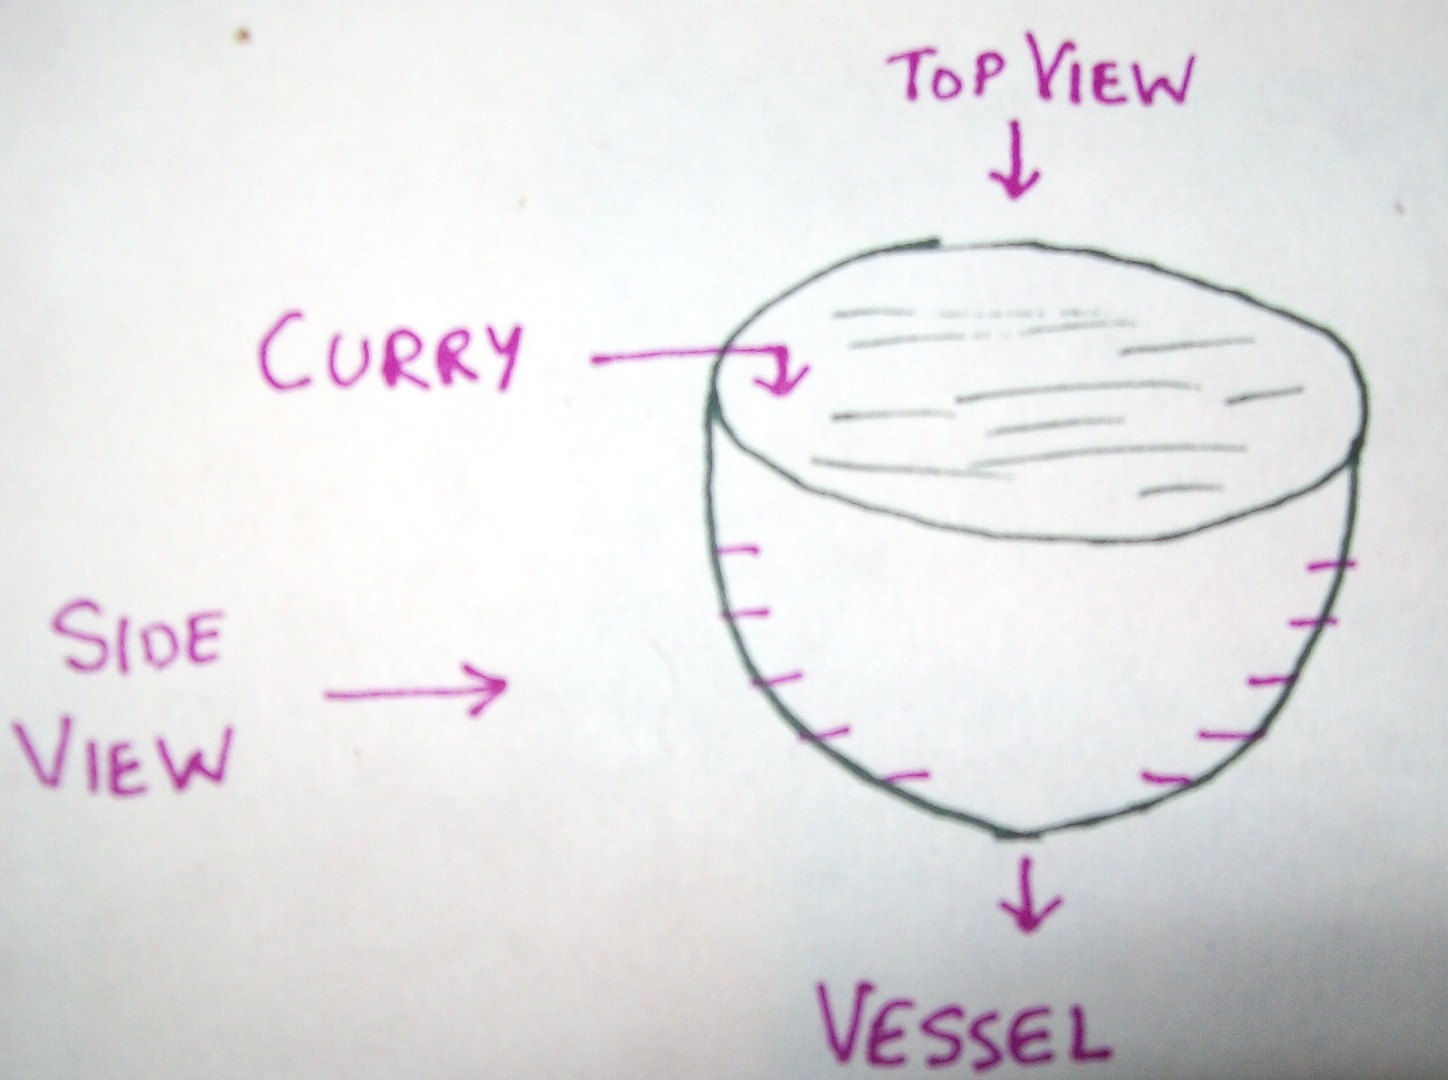 TOP VIEW
CURRY
SIDE
VIEW
VESSEL